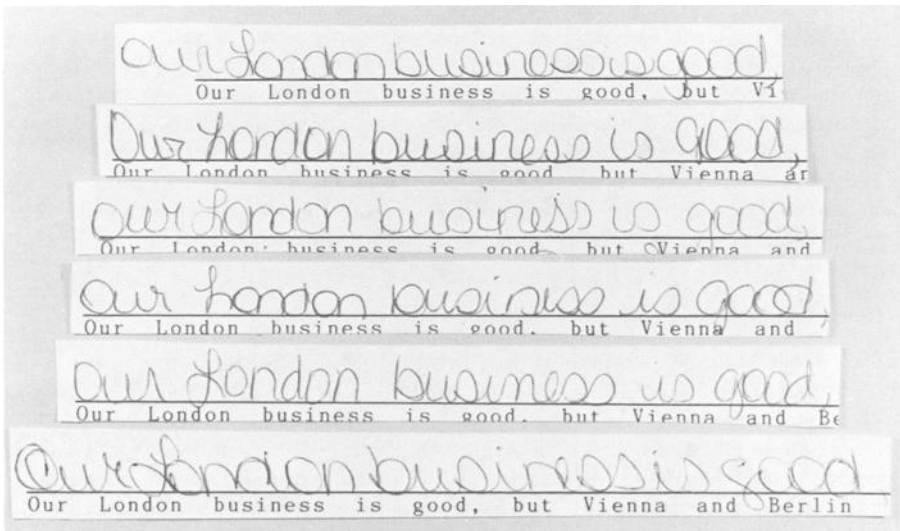 Our London business is good,
Our London business is good, but Vi
Our London business is good,
Our London business is good but Vienna ar
Our London business is good,
Our London business is good but Vienna and
Our London business is good
Our London business is good, but Vienna and
Our London business is good,
Our London business is good, but Vienna and Be
Our London business is good
Our London business is good, but Vienna and Berlin